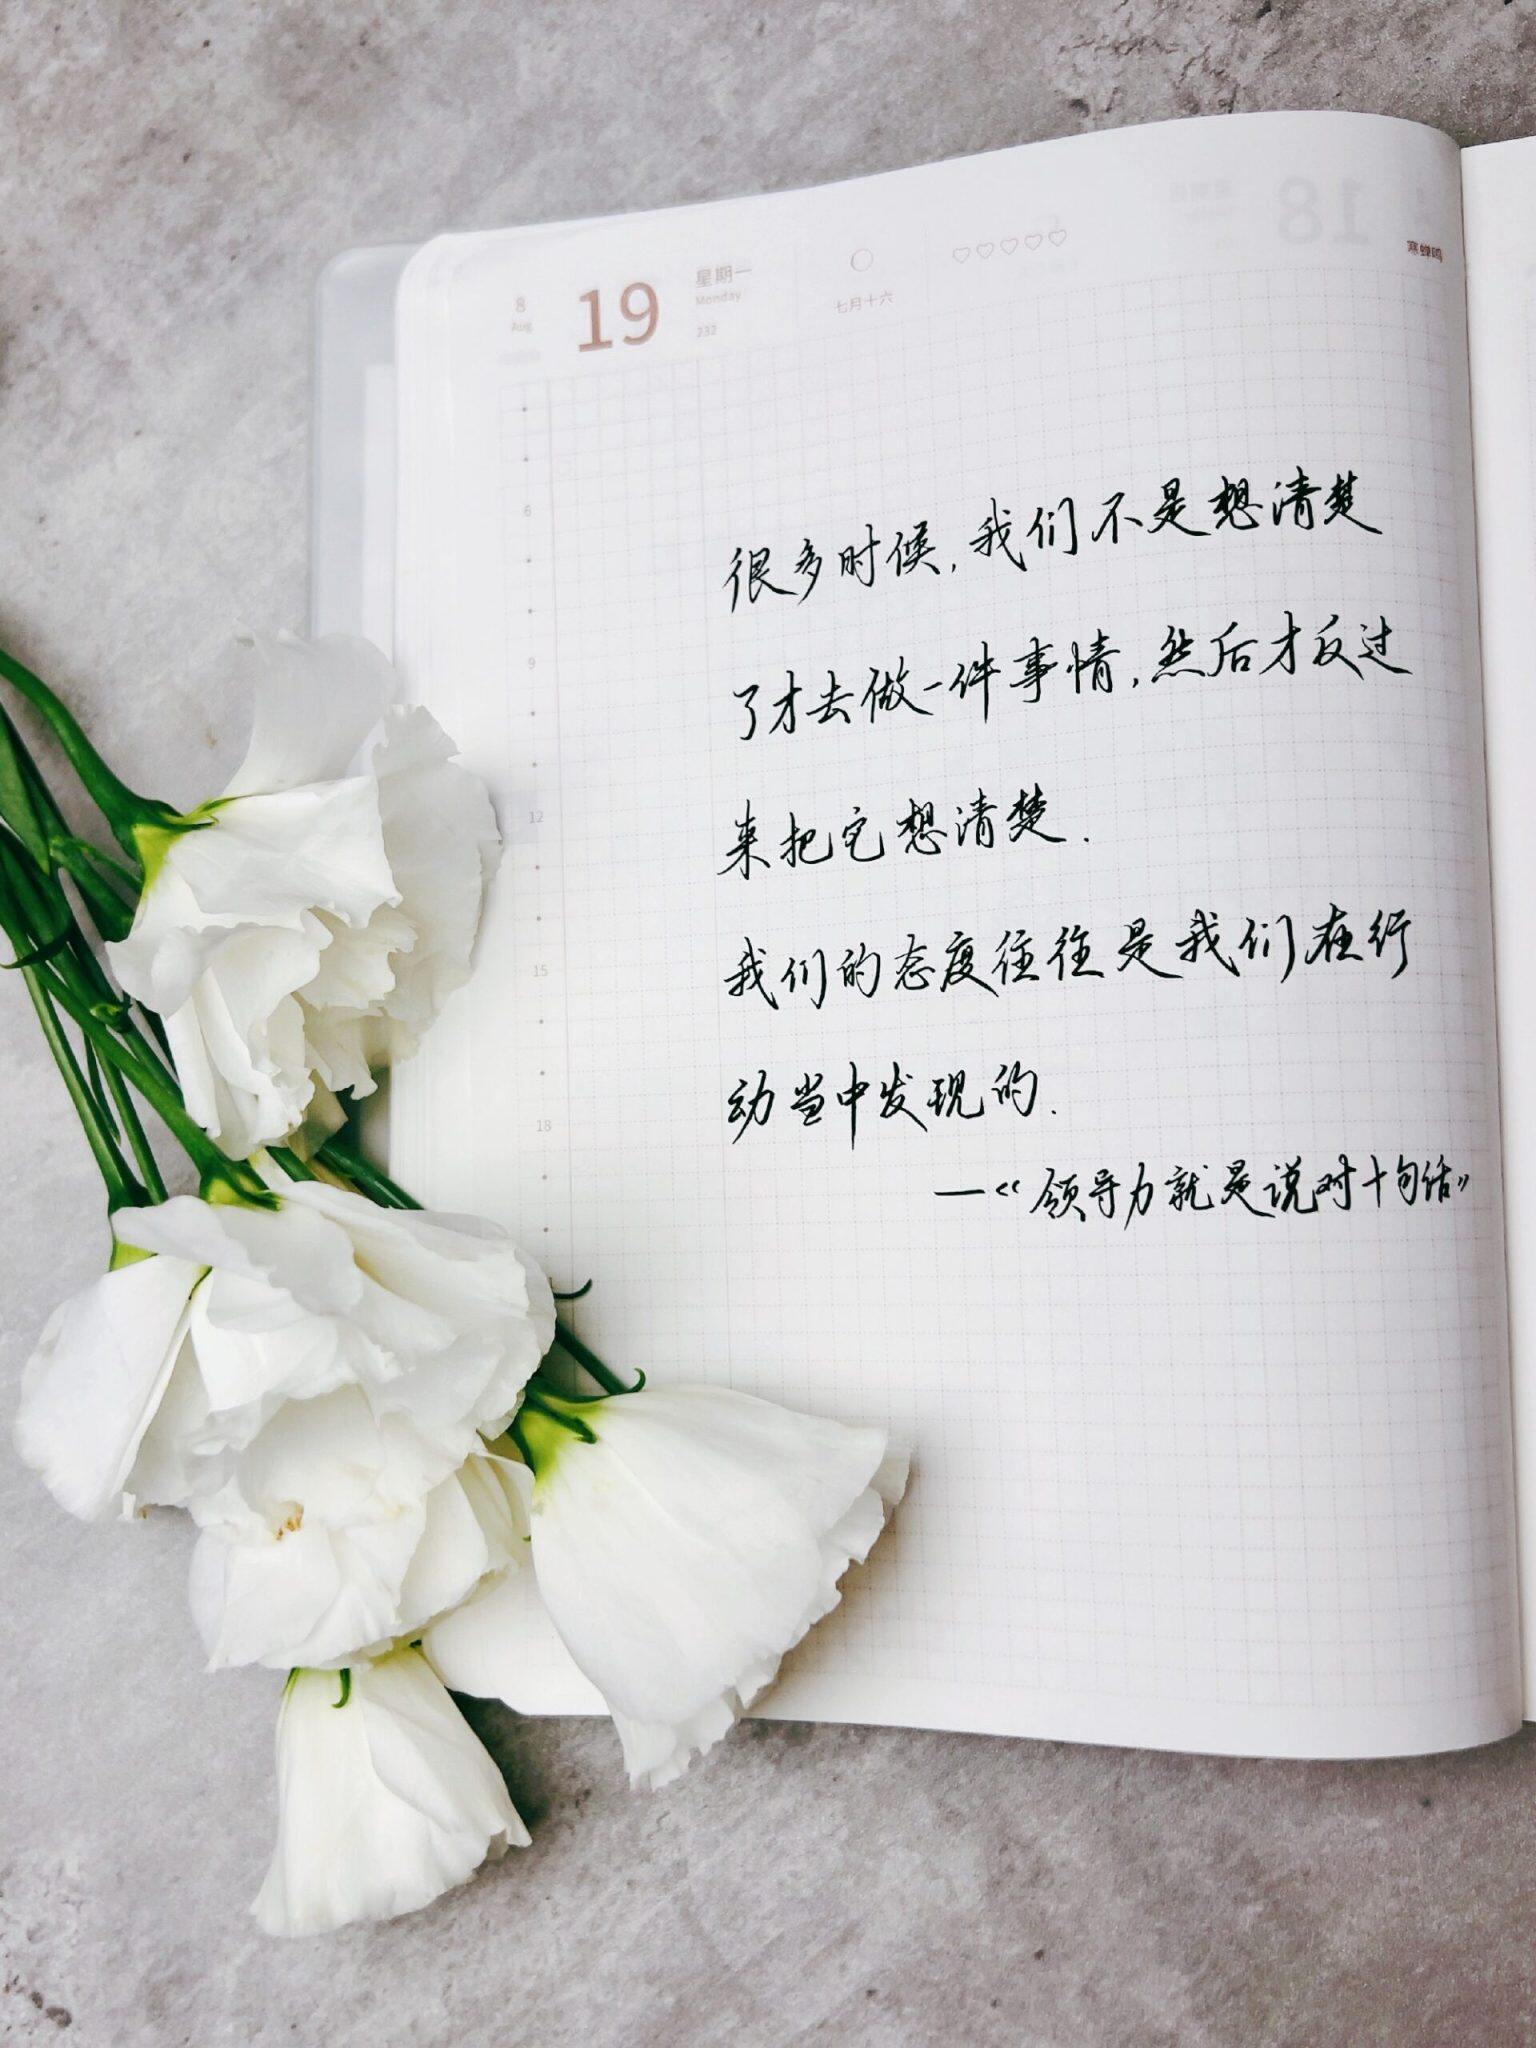 8
Aug
19
星期一
Monday
232
七月十六
18
寒蝉鸣
6
9
12
15
18
很多时候,我们不是想清楚
了才去做一件事情,然后才反过
来把它想清楚.
我们的态度往往是我们在行
动当中发现的.
—《领导力就是说对十句话》